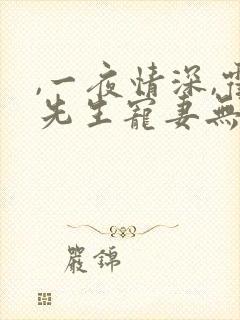 ,一夜情深,
先生寵妻無
嚴錦